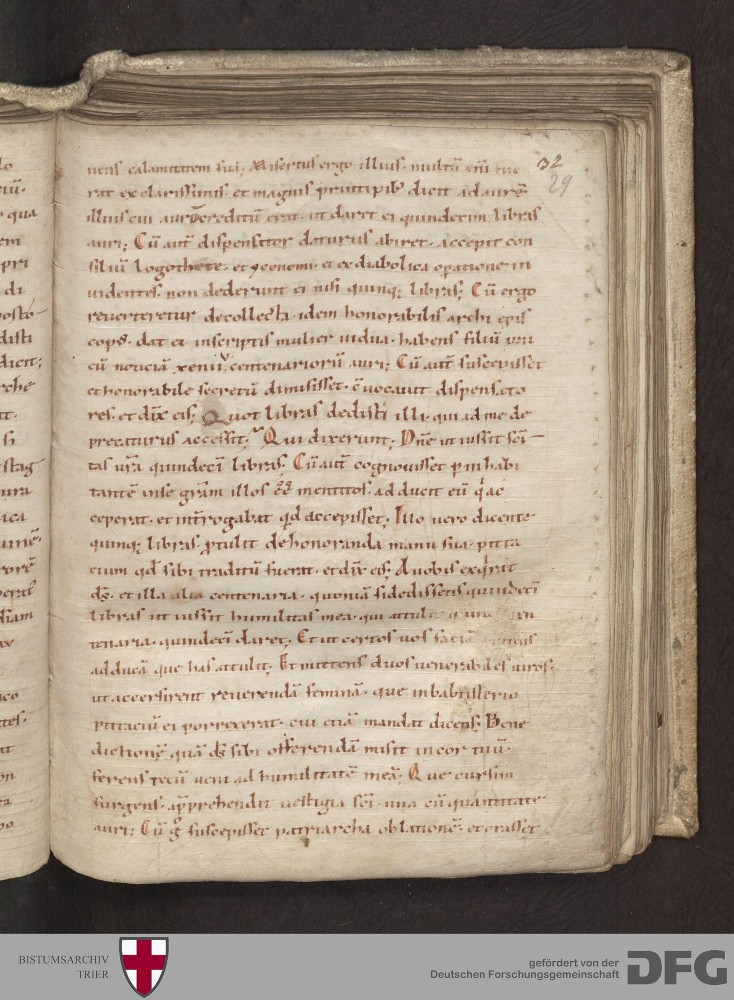 lo
ciū.
qua
em
pri
di
posto-
disti
dicit;
rche
tt.
si
stag
ura
ica
umē.
rorē
perat
diam
ico
tes.
tt
on
ra
po
32
29
uens calamitatem sui; Misertus ergo illius. multū eni
rat ex clarissimis. et magnis principib; dicit ad aurē
illius cui aurū creditū erat. ut daret ei quindecim libras
auri; Cū aut dispensator daturus abiret. accepit con
siliū logothete. et yconomi. et ex diabolica operatione in
uidentes. non dederunt ei nisi quinq; libras; Cū ergo
reuerteretur de collecta. idem honorabilis archi epis
cops. dat ei inscriptis mulier uidua. habens filiū uni
cū noticiā centenariorū auri; Cū aut suscepisset
et honorabile secretū dimisisset. cuocauit dispensato
res. et dix eis; Quot libras dedisti illi. qui ad me de
precaturus accessit; Qui dixerunt; Dne ut iussit sci
tas ura quindeci libras; Cū aut cognouisset p inhabi
tantē in se gram illos eē mentitos. adducit eū q ac
ceperat. et introgabat qd accepisset; Illo uero dicente
quinq; libras. ptulit de honoranda manu sua pitta
cium qd sibi traditū fuerat. et dix eis; A uobis exqrat
ds. et illa alia centenaria. quoniā si dedissetis quindeci
libras ut iussit humilitas mea. que attulit
tenaria. quindeci daret; Et ut certos uos
adducā que has attulit; Et mittens duos uenerabiles uiros.
ut accersirent reuerendā feminā. que in babtisterio
pittaciū ei porrexerat. cui etiā mandat dicens; Bene
dictionē quā ds sibi offerendā misit in cor tuū.
ferens tecū ueni ad humilitatē meā; Que cursim
surgens. apprehendit uestigia sci. una cū quantitate
auri; Cū g suscepisset patriarcha oblationē. et orasset
BISTUMSARCHIV
TRIER
gefördert von der
Deutschen Forschungsgemeinschaft
DFG